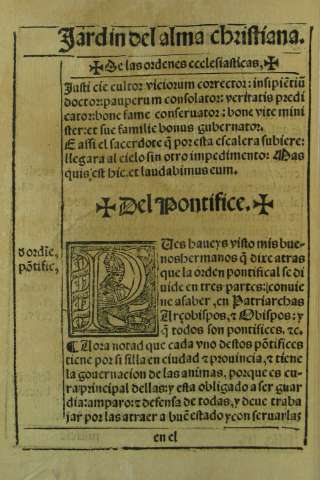 Jardin del alma christiana.
✠De las ordenes ecclesiasticas,✠
Justi cie cultor viciorum corrector: insipiẽtiũ
doctor: pauperum consolator: veritatis predi
cator: bone fame conseruator: bone vite mini
ster: et sue familie bonus gubernator.
E assi el sacerdote q̃ por esta escalera subiere:
llegara al cielo sin otro impedimento: Mas
quis est hic. et laudabimus eum.
✠Del Pontifice.✠
d ordĩe,
põtific,
PUes haueys visto mis bue-
nos hermanos q̃ dixe atras
que la orden pontifical se di
uide en tres partes: conuie
ne a saber, en Patriarchas
Arçobispos, & Obispos: y
q̃ todos son pontifices, &c.
Aora notad que cada vno destos põtifices
tiene por si silla en ciudad & prouincia, & tiene
la gouernacion de las animas, porque es cu-
ra principal dellas: y esta obligado a ser guar
dia: amparo: & defensa de todas, y deue traba
jar por las atraer a buẽ estado y con seruarlas
en el